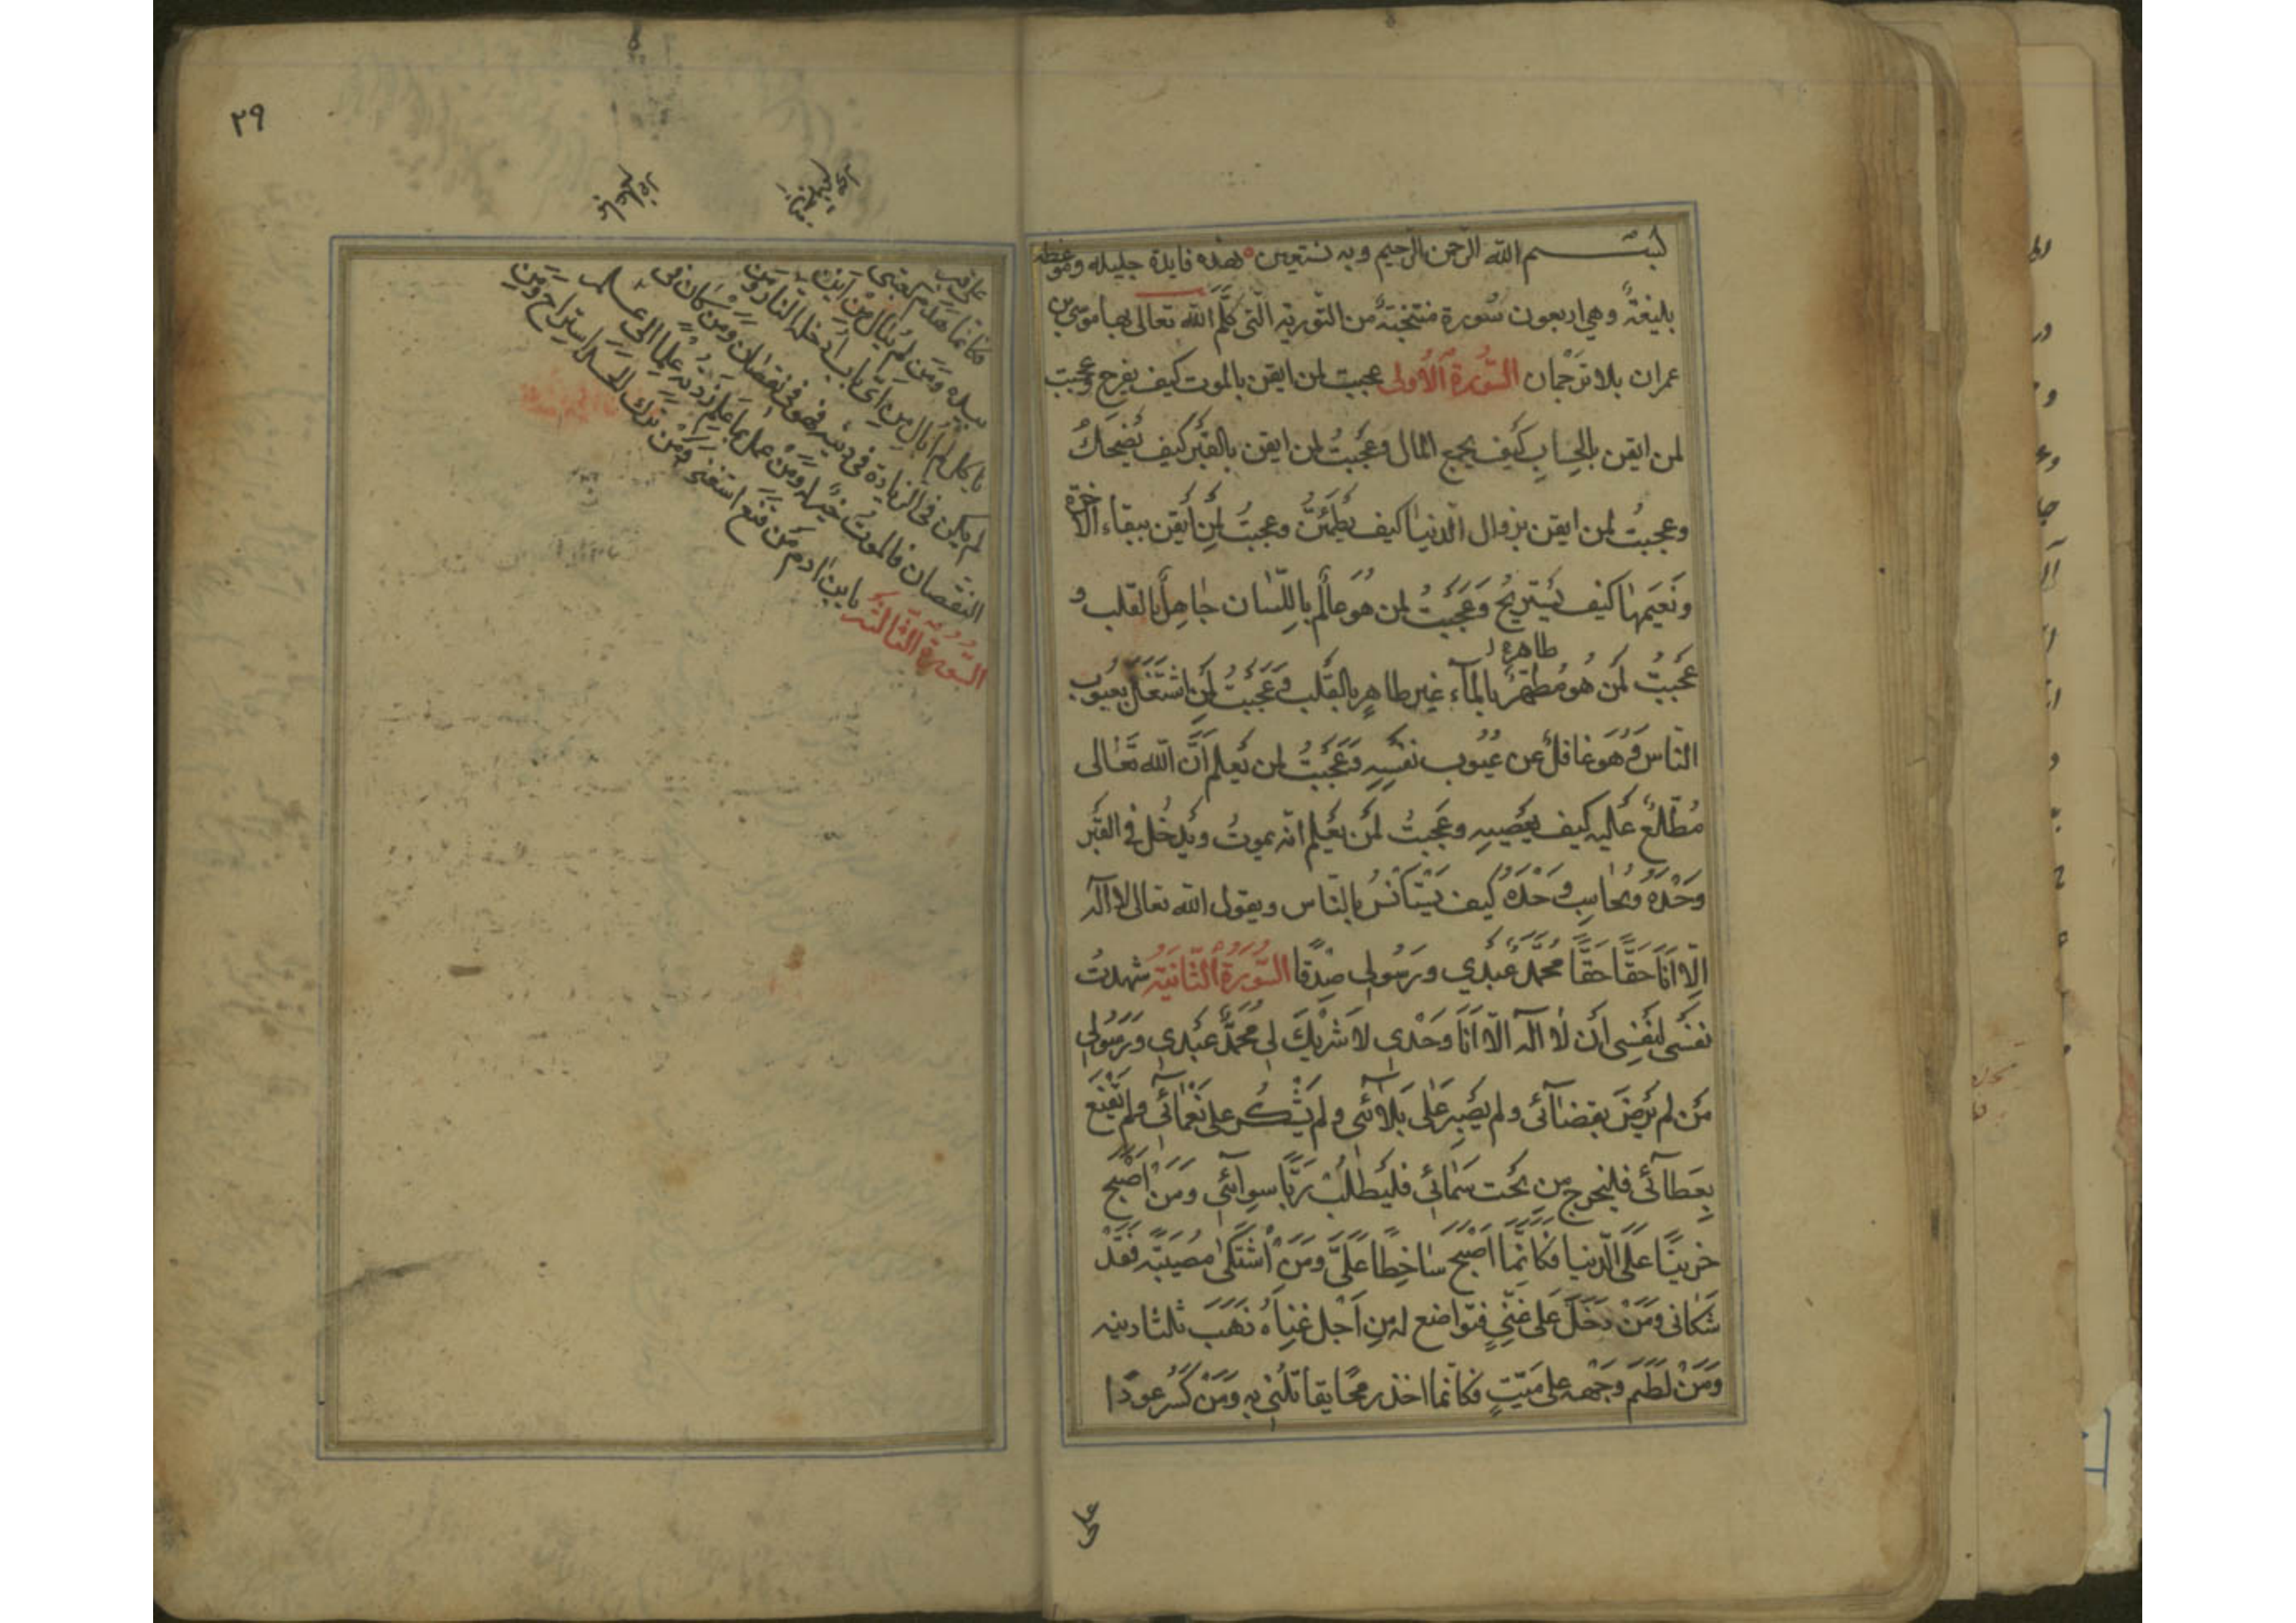 بسم الله الرحمن الرحيم وبه نستعين هذه فايدة جليله وموعظه
بليغةً وهي اربعون سُورة منتخبةً من التّورية الّتي كَلَّمَ الله تعالى بها موسى بن
عمران بلا ترجمان السُّورَةُ الْأُولى عجبت لمن ايقن بالموت كيف يفرح وعجبت
لمن ايقن بالحِسابِ كَيف يجمع المال وعَجبتُ لمن ايقن بالقَبْر كيف يَضْحَكُ
وعجبتُ لمن ايقن بزوال الدّنيا كيف يَطْمَئِنُّ وعجبتُ لِمَنْ أيقن ببقاء الآخرة
ونَعيمها كيف يَسْتريحُ وَعَجَبتُ لمن هو عالمٌ باللّسان جاهِلٌ بالقلب و
طاهره
عَجبتُ لمَن هُو مُطَهّرٌ بالمآء غير طاهرٍ بالقَلب وَعَجَبتُ لِمَن اشتَغَلَ بعيُوب
النّاس وَهُوَ غافلٌ عن عيُوب نفسِهِ وَعَجَبتُ لمن يَعلم أَنَّ الله تَعالى
مُطّلعٌ عَليه كيف يَعصيه وعَجبتُ لمَن يَعلم انّه يموتُ ويَدخُل في القَبر
وَحْدَهُ ويُحاسِب وَحْدَهُ كيف يَسْتَأنسُ بالنّاس ويقول الله تعالى لا اله
اِلّا اَنَا حَقًّا حَقًّا مُحَمّدٌ عَبدي ورَسُولي صِدقًا السُّورَةُ الثّانيَة شهدتُ
نفسي لنفسِي أن لا اله الّا اَنَا وَحْدي لا شَريكَ لي مُحمَّدٌ عَبْدي ورَسُولي
مَن لم يَرضَ بقضآئي ولم يصْبر عَلى بَلائي ولم يَشْكُر على نَعمآئي ولم يَقْنَع
بِعَطآئي فليخرج مِن تحت سَمآئي فليَطلُبْ رَبًّا سِوائي وَمَن اَصْبح
حزينًا عَلَى الدّنيا فكأَنَّما اَصْبَحَ ساخِطًا عَلَيَّ وَمَنِ اشْتَكى مُصيبَته فَقَدْ
شَكاني وَمَنْ دَخَلَ عَلى غَنيٍّ فتواضع له مِن اَجْل غِناهُ ذَهَبَ ثلثا دينه
وَمَنْ لَطَمَ وَجْهه على ميّتٍ فكأنّما اخذ رمحًا يقاتلُني به وَمَنْ كسَرَ عودًا
على
٢٩
على
فكانما هَدَمَ كعبتي
بيده وَمَن لم يُبال مِنْ اَينَ
ياكل لم اُبال مِن اَيّ باب ادخله النار ومن
لم يكن في الزيادة في دينه فهو في نقصان ومن كان في
النقصان فالموتُ خيرٌ له ومَنْ عمل بما علم زدته علمًا الى علم
السُّورَةُ الثّالثة يا بن ادم مَن قنع استغنى وَمَنْ ترك الحسد استراح ومن